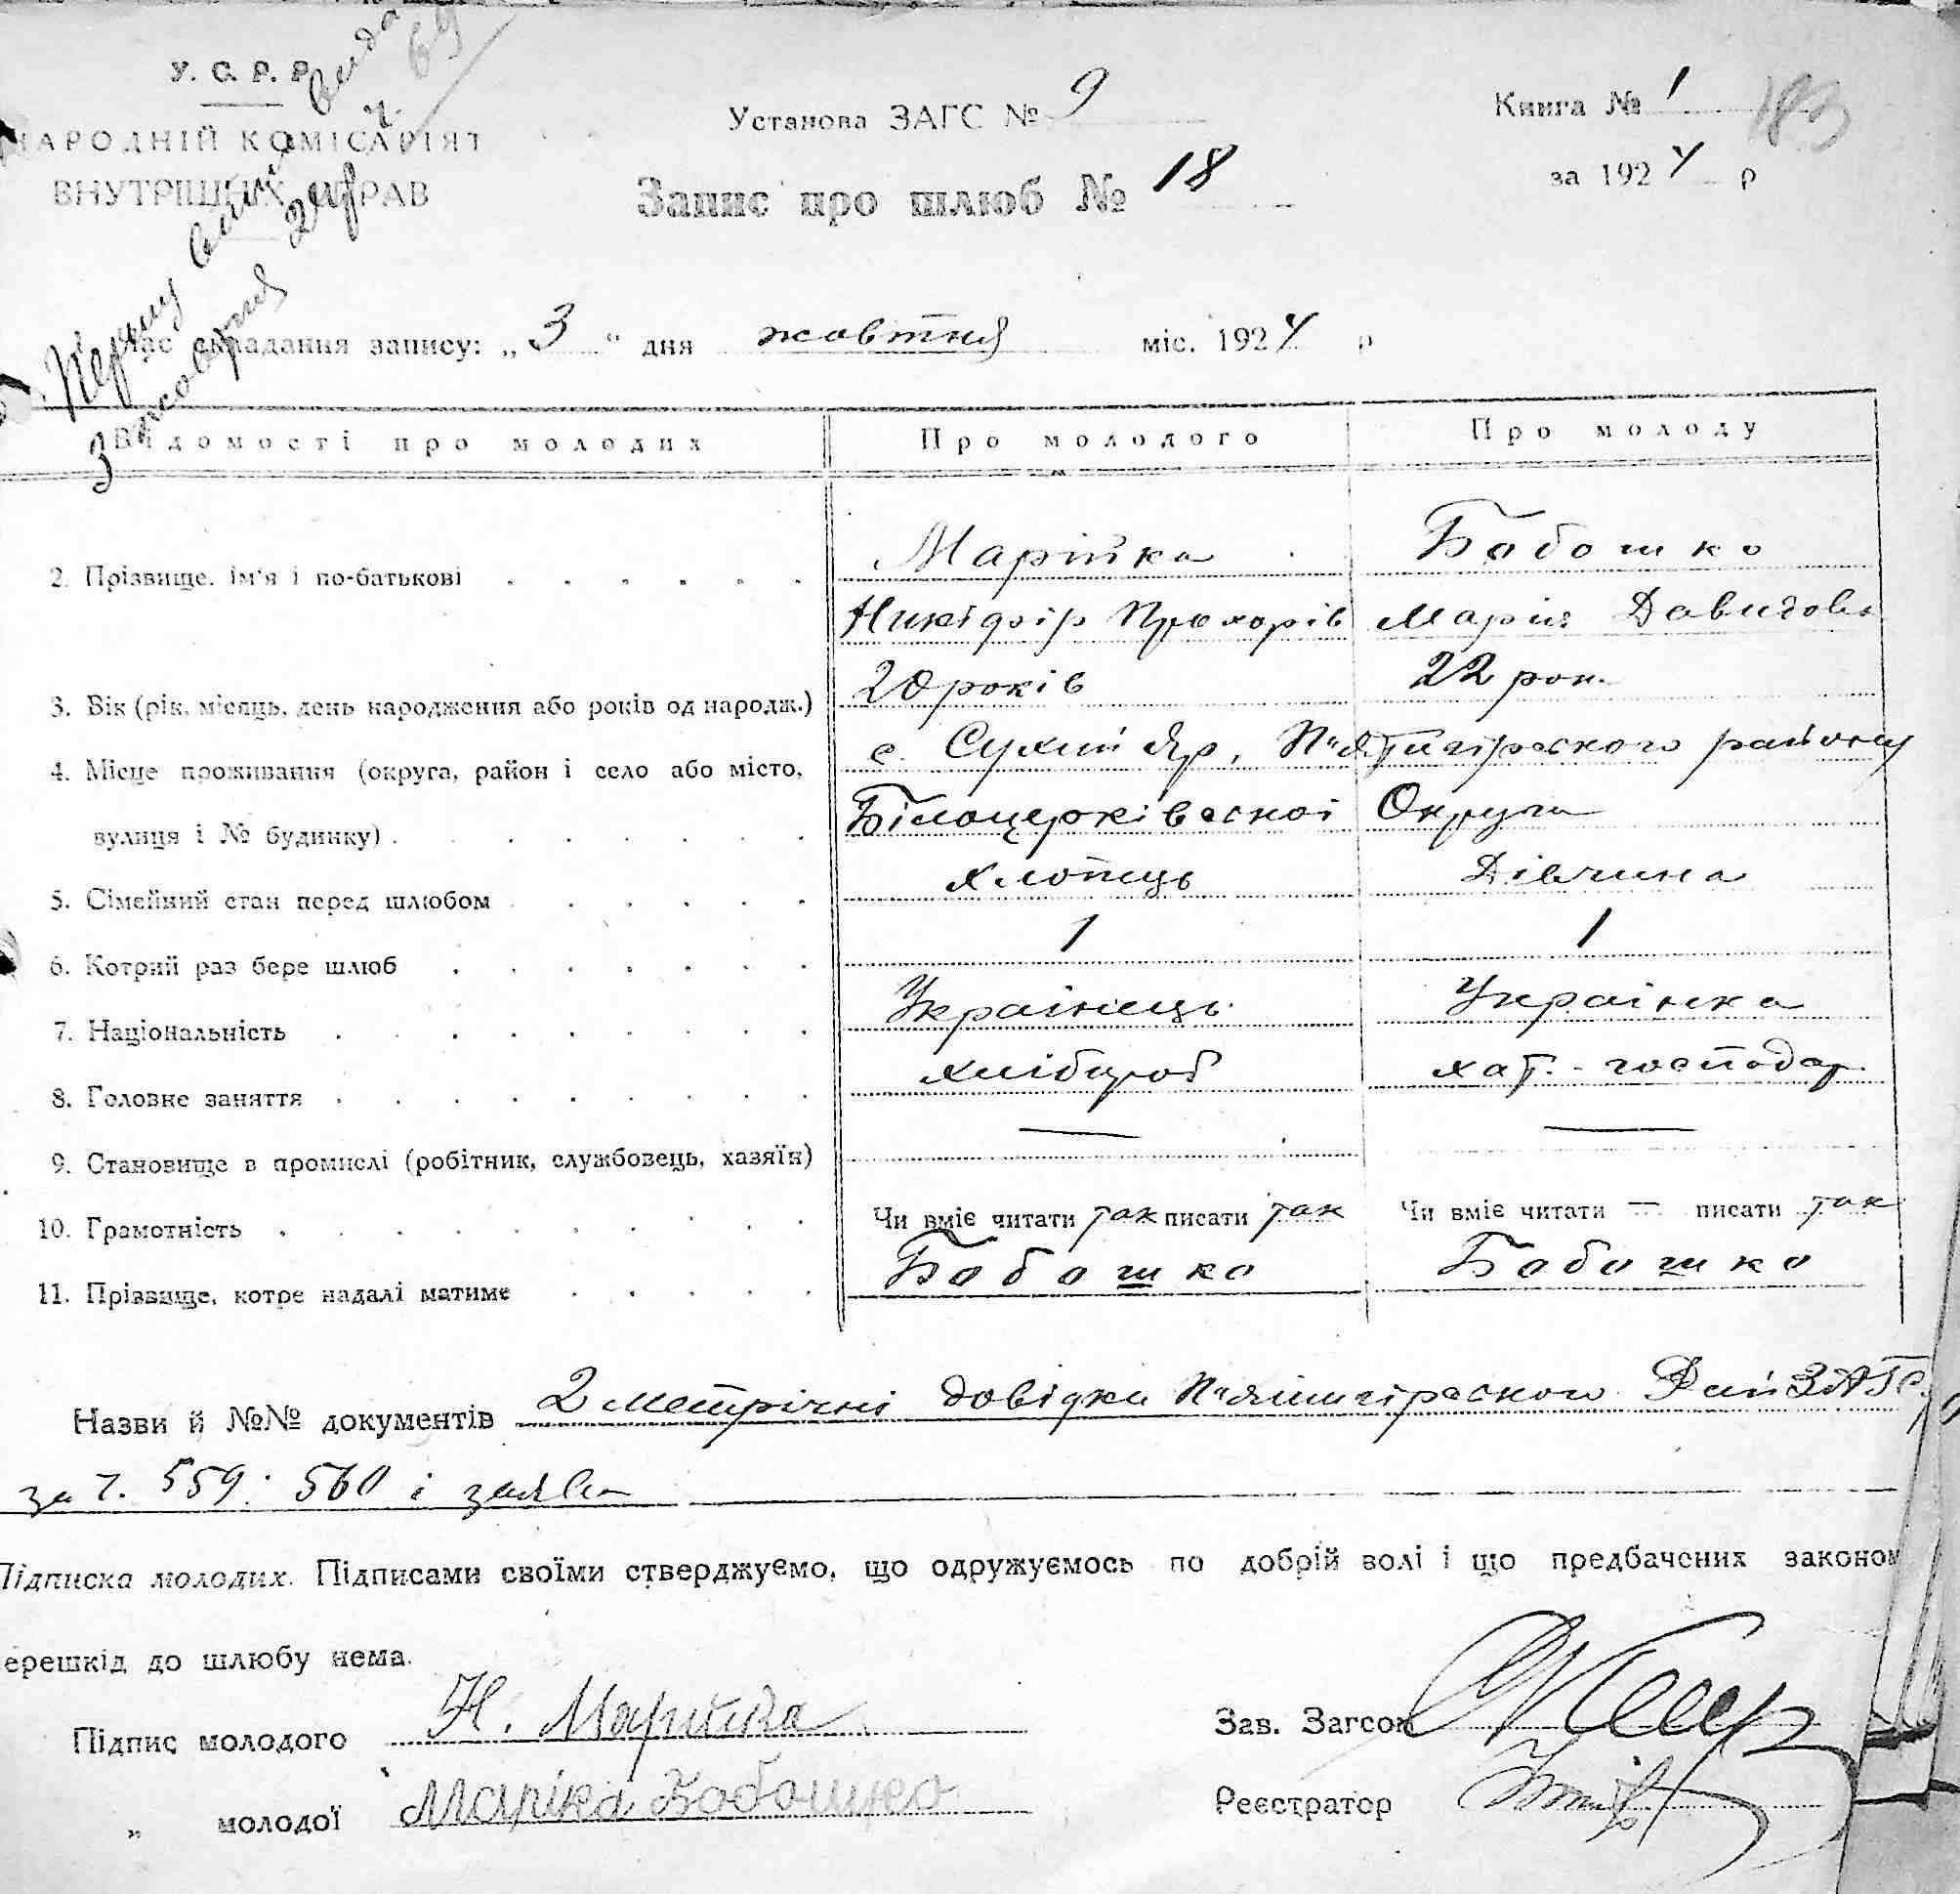 У. С. Р. Р.
НАРОДНІЙ КОМІСАРІЯТ
ВНУТРІШНІХ СПРАВ
Першу виписку видано
3 жовтня 24 р. ч. 69
Установа ЗАГС № 9
Книга № 1
183
за 1924 р
Запис про шлюб № 18
Час складання запису: „3“ дня жовтня міс. 1924 р
Відомості про молодих Про молодого Про молоду
2. Прізвище, ім'я і по-батькові Марійка Бабошко
Никіфір Прохорів Марія Давидова
3. Вік (рік, місяць, день народження або років од народж.) 20 років 22 рок.
4. Місце проживання (округа, район і село або місто, с. Сухий Яр, П'ятигірського району
вулиця і № будинку) Білоцерківської Округи
5. Сімейний стан перед шлюбом хлопець Дівчина
6. Котрий раз бере шлюб 1 1
7. Національність Українець Українка
8. Головне заняття хлібороб хат.-господар.
9. Становище в промислі (робітник, службовець, хазяїн) — —
10. Грамотність Чи вміє читати так писати так Чи вміє читати — писати так
11. Прізвище, котре надалі матиме Бабошко Бабошко
Назви й №№ документів 2 метрічні довідки П'ятигірського РайЗАГС
за ч. 559. 560 і заява
Підписка молодих. Підписами своїми стверджуємо, що одружуємось по добрій волі і що предбачених законом
перешкід до шлюбу нема.
Підпис молодого Н. Марийка
Зав. Загсом
„ молодої Маріка Бабошко
Реєстратор